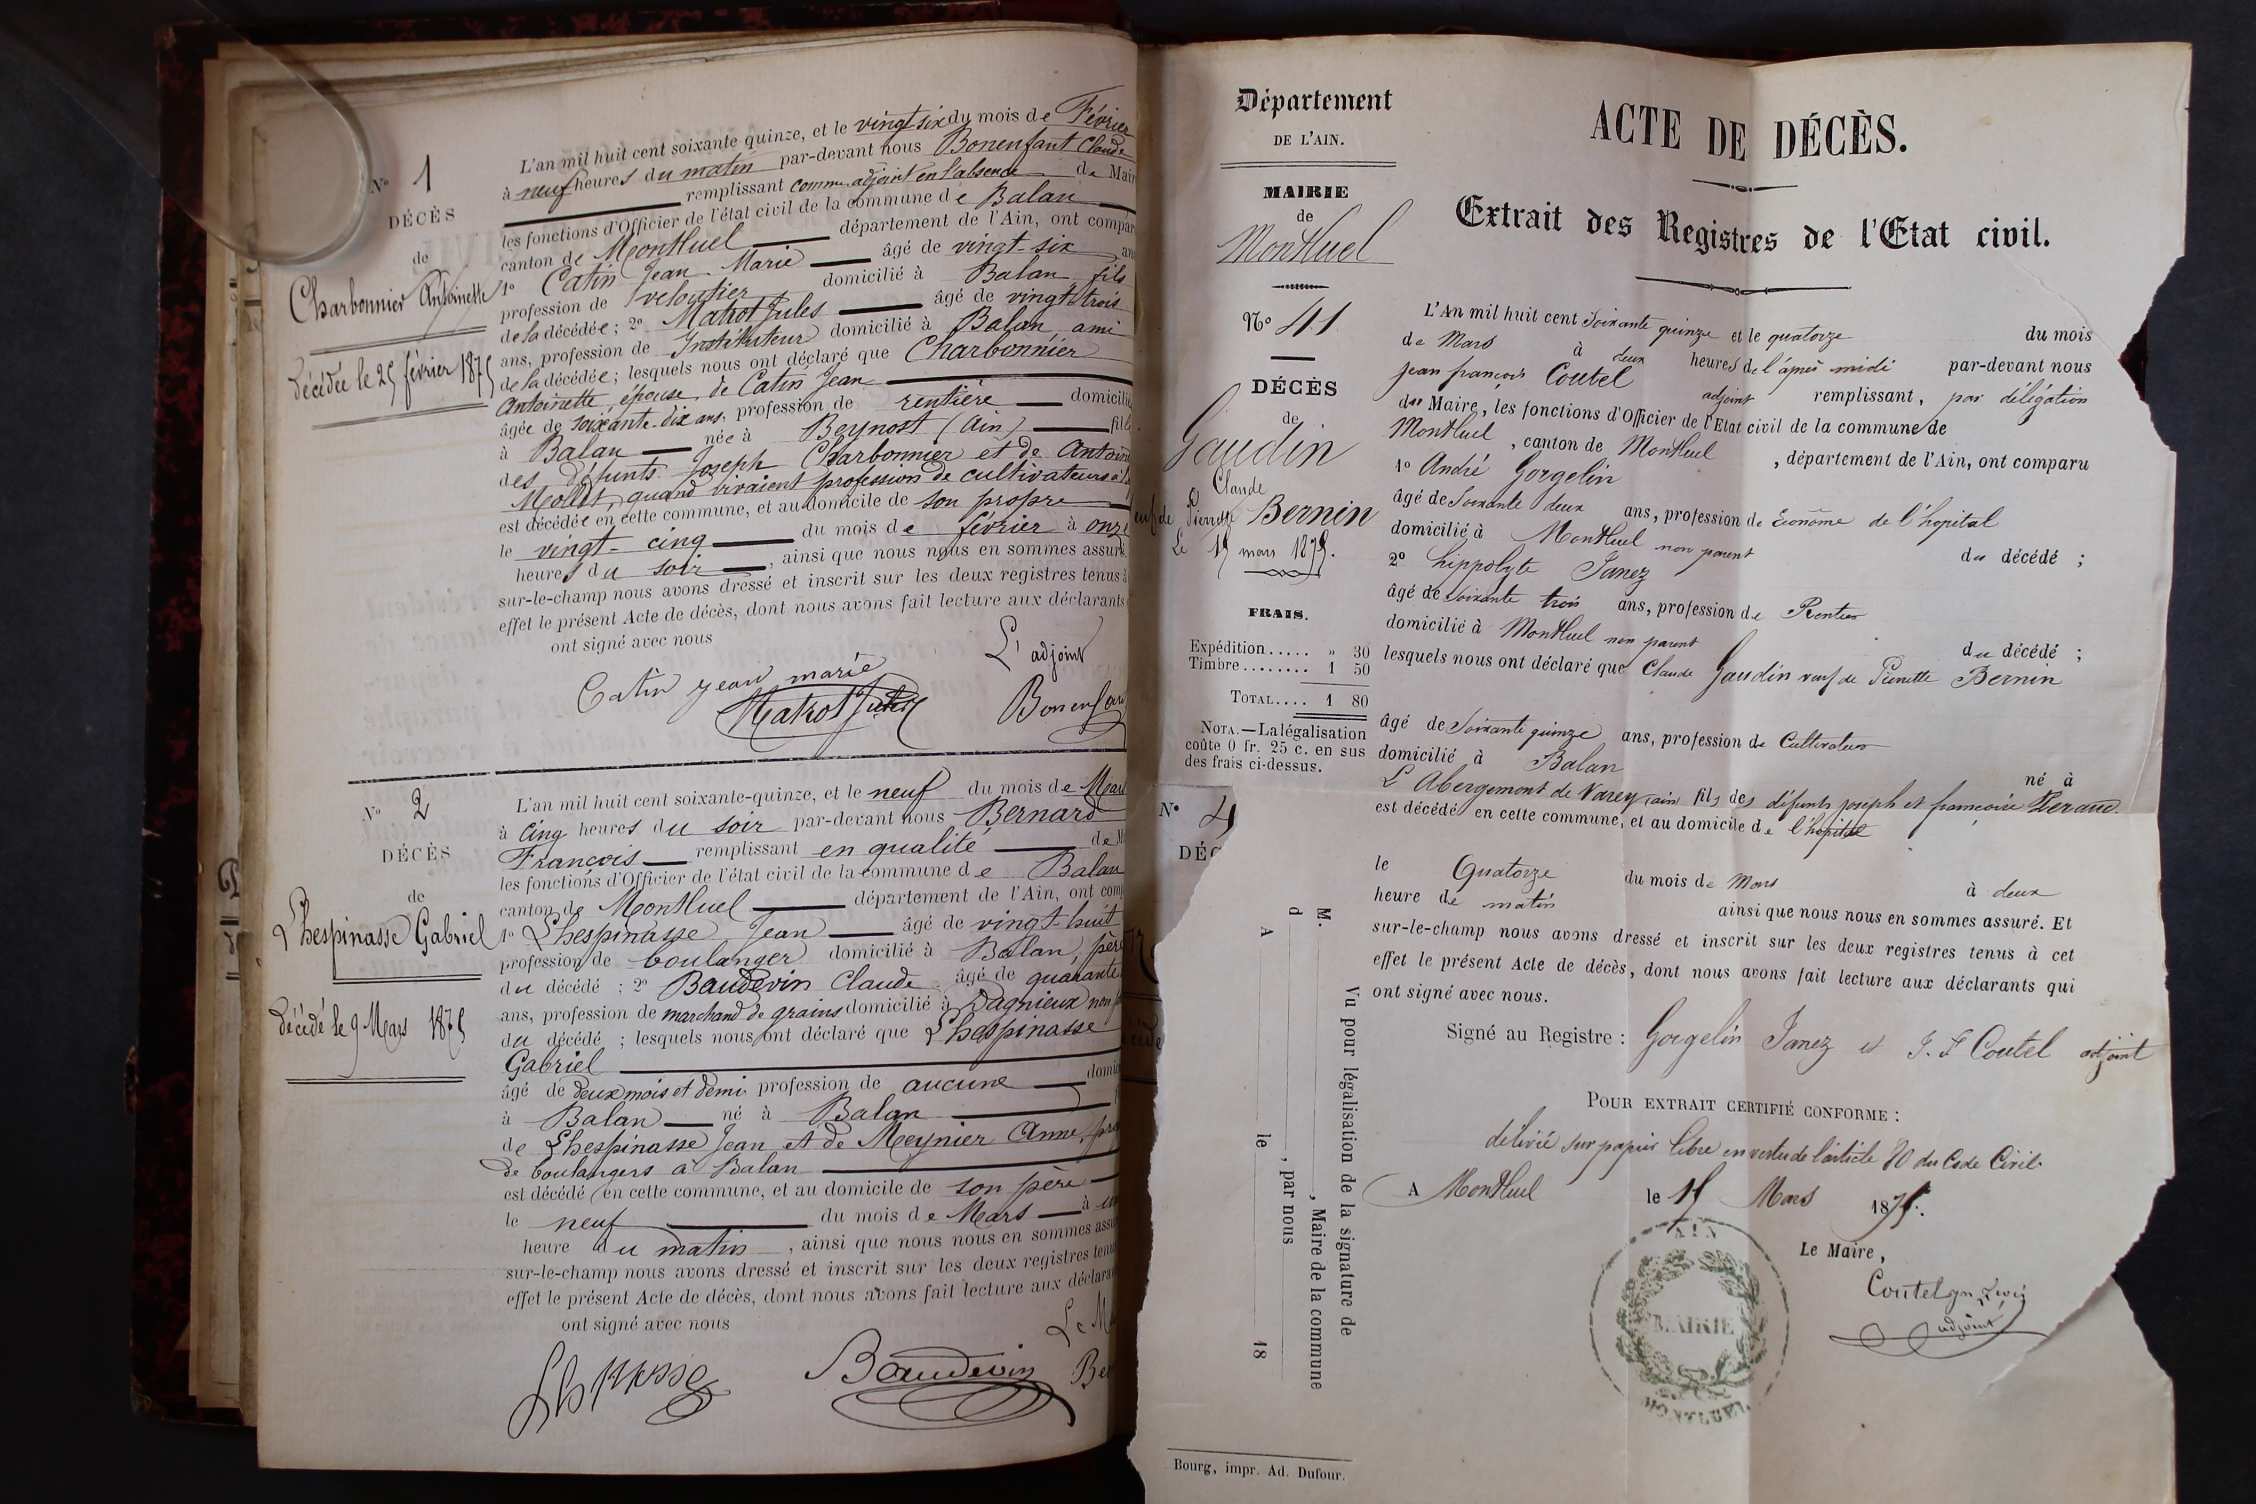 N° 1
DÉCÈS
de
Charbonnier Antoinette
Décédée le 25 février 1875
L'an mil huit cent soixante quinze, et le vingt-six du mois de Février
à neuf heures du matin par-devant nous Bonenfant Claude
remplissant comme adjoint en l'absence de Mair
les fonctions d'Officier de l'état civil de la commune de Balan
canton de Montluel département de l'Ain, ont compar
1° Catin Jean Marie âgé de vingt-six an
profession de veloutier domicilié à Balan fils
de la décédée; 2° Matrot Jules âgé de vingt-trois
ans, profession de Instituteur domicilié à Balan ami
de la décédée; lesquels nous ont déclaré que Charbonnier
Antoinette, épouse, de Catin Jean
âgée de soixante-dix ans, profession de rentière domicilié
à Balan née à Beynost (Ain) fille
des défunts Joseph Charbonnier et de Antoin
Mollet, quand vivaient profession de cultivateurs à
est décédée en cette commune, et au domicile de son propre
le vingt-cinq du mois de février à onze
heures du soir, ainsi que nous nous en sommes assuré
sur-le-champ nous avons dressé et inscrit sur les deux registres tenus à
effet le présent Acte de décès, dont nous avons fait lecture aux déclarants
ont signé avec nous
L'adjoint
Catin jean marie
Matrot Jules
Bonenfan
N° 2
DÉCÈS
de
Lhespinasse Gabriel
Décédé le 9 Mars 1875
L'an mil huit cent soixante-quinze, et le neuf du mois de Mars
à Cinq heures du soir par-devant nous Bernard
François remplissant en qualité de M
les fonctions d'Officier de l'état civil de la commune de Balan
canton de Montluel département de l'Ain, ont comp
1° Lhespinasse Jean âgé de vingt-huit
profession de boulanger domicilié à Balan, père
du décédé; 2° Baudevin Claude âgé de quarante
ans, profession de marchand de grains domicilié à Dagnieux non
du décédé; lesquels nous ont déclaré que Lhespinasse
Gabriel
âgé de deux mois et demi profession de aucune domi
à Balan né à Balan
de Lhespinasse Jean et de Meynier Anne, pro
de boulangers à Balan
est décédé en cette commune, et au domicile de son père
le neuf du mois de Mars à
heure du matin, ainsi que nous nous en sommes assu
sur-le-champ nous avons dressé et inscrit sur les deux registres tenu
effet le présent Acte de décès, dont nous avons fait lecture aux déclara
ont signé avec nous
Le M
Baudevin
Ber
Département
DE L'AIN.
MAIRIE
de
Montluel
N° 41
DÉCÈS
de
Gaudin
Claude
Pierrette Bernin
Le 15 mars 1875.
FRAIS.
Expédition..... » 30
Timbre........ 1 50
TOTAL.... 1 80
NOTA.—La légalisation
coûte 0 fr. 25 c. en sus
des frais ci-dessus.
N° 4
DÉC
Vu pour légalisation de la signature de
M. , Maire de la commune
d , par nous
A le 18
Bourg, impr. Ad. Dufour.
ACTE DE DÉCÈS.
Extrait des Registres de l'Etat civil.
L'An mil huit cent Soixante quinze et le quatorze du mois
de Mars à deux heures de l'après midi par-devant nous
Jean françois Coutel adjoint remplissant, par délégation
du Maire, les fonctions d'Officier de l'Etat civil de la commune de
Montluel, canton de Montluel, département de l'Ain, ont comparu
1° André Gorgelin
âgé de Soixante deux ans, profession de Econome de l'hopital
domicilié à Montluel non parent du décédé;
2° hippolyte Janez
âgé de Soixante trois ans, profession de Rentier
domicilié à Montluel non parent du décédé;
lesquels nous ont déclaré que Claude Gaudin veuf de Pierrette Bernin
âgé de Soixante quinze ans, profession de Cultivateur
domicilié à Balan né à
L'Abergement de Varey (ain) fils des défunts joseph et françoise
est décédé en cette commune, et au domicile de l'hopital
le Quatorze du mois de Mars à deux
heure de matin ainsi que nous nous en sommes assuré. Et
sur-le-champ nous avons dressé et inscrit sur les deux registres tenus à cet
effet le présent Acte de décès, dont nous avons fait lecture aux déclarants qui
ont signé avec nous.
Signé au Registre: Gorgelin Janez et J. F Coutel adjoint
POUR EXTRAIT CERTIFIÉ CONFORME:
délivré sur papier libre en vertu de l'article 80 du Code Civil.
A Montluel le 15 Mars 1875.
Le Maire,
Coutel
adjoint
AIN
MAIRIE
MONTLUEL